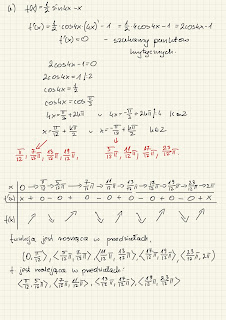 f(x) = ½ sin4x - x
f'(x) = ½ · cos4x · (4x)' - 1 = ½ · 4cos4x - 1 = 2cos4x - 1
f'(x) = 0 - szukamy punktów krytycznych.
2cos4x - 1 = 0
2cos4x = 1 |:2
cos4x = ½
cos4x = cos π/3
4x = π/3 + 2kπ ∨ 4x = -π/3 + 2kπ |:4 k∈Z
x = π/12 + kπ/2 ∨ x = -π/12 + kπ/2 k∈Z
π/12, 7/12π, 13/12π, 19/12π, 5/12π, 11/12π, 17/12π, 23/12π
x 0 → π/12 → 5/12π → 7/12π → 11/12π → 13/12π → 17/12π → 19/12π → 23/12π → 2π
f'(x) x + 0 - 0 + 0 - 0 + 0 - 0 + 0 - 0 + x
f(x) ↗ ↘ ↗ ↘ ↗ ↘ ↗ ↘ ↗
funkcja jest rosnąca w przedziałach:
⟨0, π/12⟩, ⟨5/12π, 7/12π⟩, ⟨11/12π, 13/12π⟩, ⟨17/12π, 19/12π⟩, ⟨23/12π, 2π⟩
A jest malejąca w przedziałach:
⟨π/12, 5/12π⟩, ⟨7/12π, 11/12π⟩, ⟨13/12π, 17/12π⟩, ⟨19/12π, 23/12π⟩